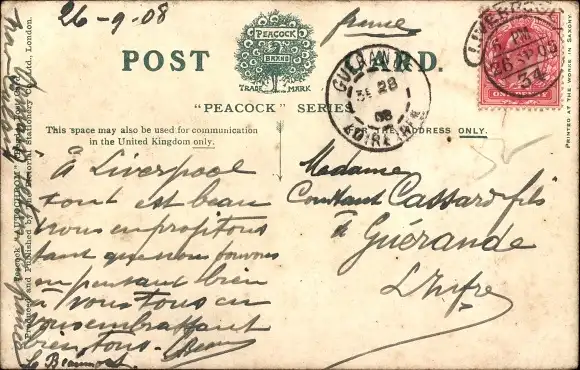 26-9-08
france
POST CARD.
PEACOCK
BRAND
TRADE MARK
"PEACOCK" SERIES
This space may also be used for communication
in the United Kingdom only.
THE ADDRESS ONLY.
LIVERPOOL
5 PM
26 SP 08
34
GUERANDE
28
08
LOIRE INFRE
PRINTED AT THE WORKS IN SAXONY.
Peacock "AUTOCHROM"
Produced and Published by The Pictorial Stationery Co., Ltd., London.
À Liverpool
tout est beau
nous en profitons
tant que nous pouvons
en pensant bien
à vous tous en
vous embrassant
bien tous.
Madame
Constant Cassard fils
à Guérande
L Infre